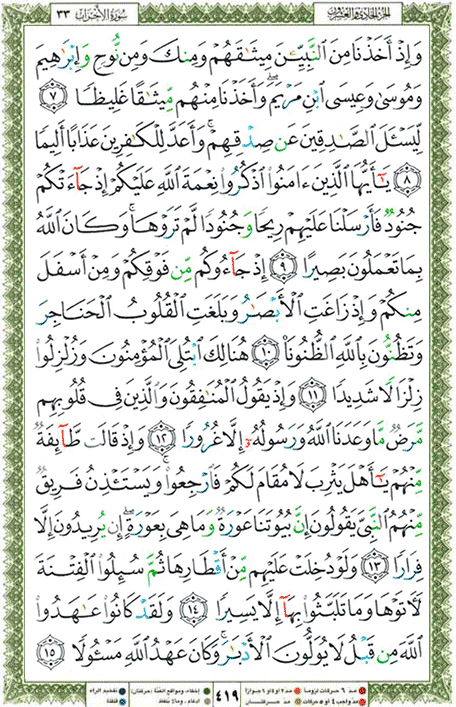 الجزء الحادي والعشرون
سُورَةُ الأَحْزَابِ ٣٣
وَإِذْ أَخَذْنَا مِنَ النَّبِيِّـۧنَ مِيثَٰقَهُمْ وَمِنكَ وَمِن نُّوحٍ وَإِبْرَٰهِيمَ
وَمُوسَىٰ وَعِيسَى ابْنِ مَرْيَمَ ۖ وَأَخَذْنَا مِنْهُم مِّيثَٰقًا غَلِيظًا ٧
لِّيَسْـَٔلَ الصَّٰدِقِينَ عَن صِدْقِهِمْ ۚ وَأَعَدَّ لِلْكَٰفِرِينَ عَذَابًا أَلِيمًا
٨ يَٰٓأَيُّهَا الَّذِينَ ءَامَنُوا۟ اذْكُرُوا۟ نِعْمَةَ اللَّهِ عَلَيْكُمْ إِذْ جَآءَتْكُمْ
جُنُودٌ فَأَرْسَلْنَا عَلَيْهِمْ رِيحًا وَجُنُودًا لَّمْ تَرَوْهَا ۚ وَكَانَ اللَّهُ
بِمَا تَعْمَلُونَ بَصِيرًا ٩ إِذْ جَآءُوكُم مِّن فَوْقِكُمْ وَمِنْ أَسْفَلَ
مِنكُمْ وَإِذْ زَاغَتِ الْأَبْصَٰرُ وَبَلَغَتِ الْقُلُوبُ الْحَنَاجِرَ
وَتَظُنُّونَ بِاللَّهِ الظُّنُونَا۠ ١٠ هُنَالِكَ ابْتُلِىَ الْمُؤْمِنُونَ وَزُلْزِلُوا۟
زِلْزَالًا شَدِيدًا ١١ وَإِذْ يَقُولُ الْمُنَٰفِقُونَ وَالَّذِينَ فِى قُلُوبِهِم
مَّرَضٌ مَّا وَعَدَنَا اللَّهُ وَرَسُولُهُۥٓ إِلَّا غُرُورًا ١٢ وَإِذْ قَالَت طَّآئِفَةٌ
مِّنْهُمْ يَٰٓأَهْلَ يَثْرِبَ لَا مُقَامَ لَكُمْ فَارْجِعُوا۟ ۚ وَيَسْتَـْٔذِنُ فَرِيقٌ
مِّنْهُمُ النَّبِىَّ يَقُولُونَ إِنَّ بُيُوتَنَا عَوْرَةٌ وَمَا هِىَ بِعَوْرَةٍ ۖ إِن يُرِيدُونَ إِلَّا
فِرَارًا ١٣ وَلَوْ دُخِلَتْ عَلَيْهِم مِّنْ أَقْطَارِهَا ثُمَّ سُئِلُوا۟ الْفِتْنَةَ
لَـَٔاتَوْهَا وَمَا تَلَبَّثُوا۟ بِهَآ إِلَّا يَسِيرًا ١٤ وَلَقَدْ كَانُوا۟ عَٰهَدُوا۟
اللَّهَ مِن قَبْلُ لَا يُوَلُّونَ الْأَدْبَٰرَ ۚ وَكَانَ عَهْدُ اللَّهِ مَسْـُٔولًا ١٥
مد ٦ حركات لزوماً مد ٢ او ٤ او ٦ جوازاً
مد واجب ٤ او ٥ حركات مد حركتان
٤١٩
إخفاء، ومواقع الغنة (حركتان) تفخيم الراء
ادغام، وما لا يلفظ قلقلة